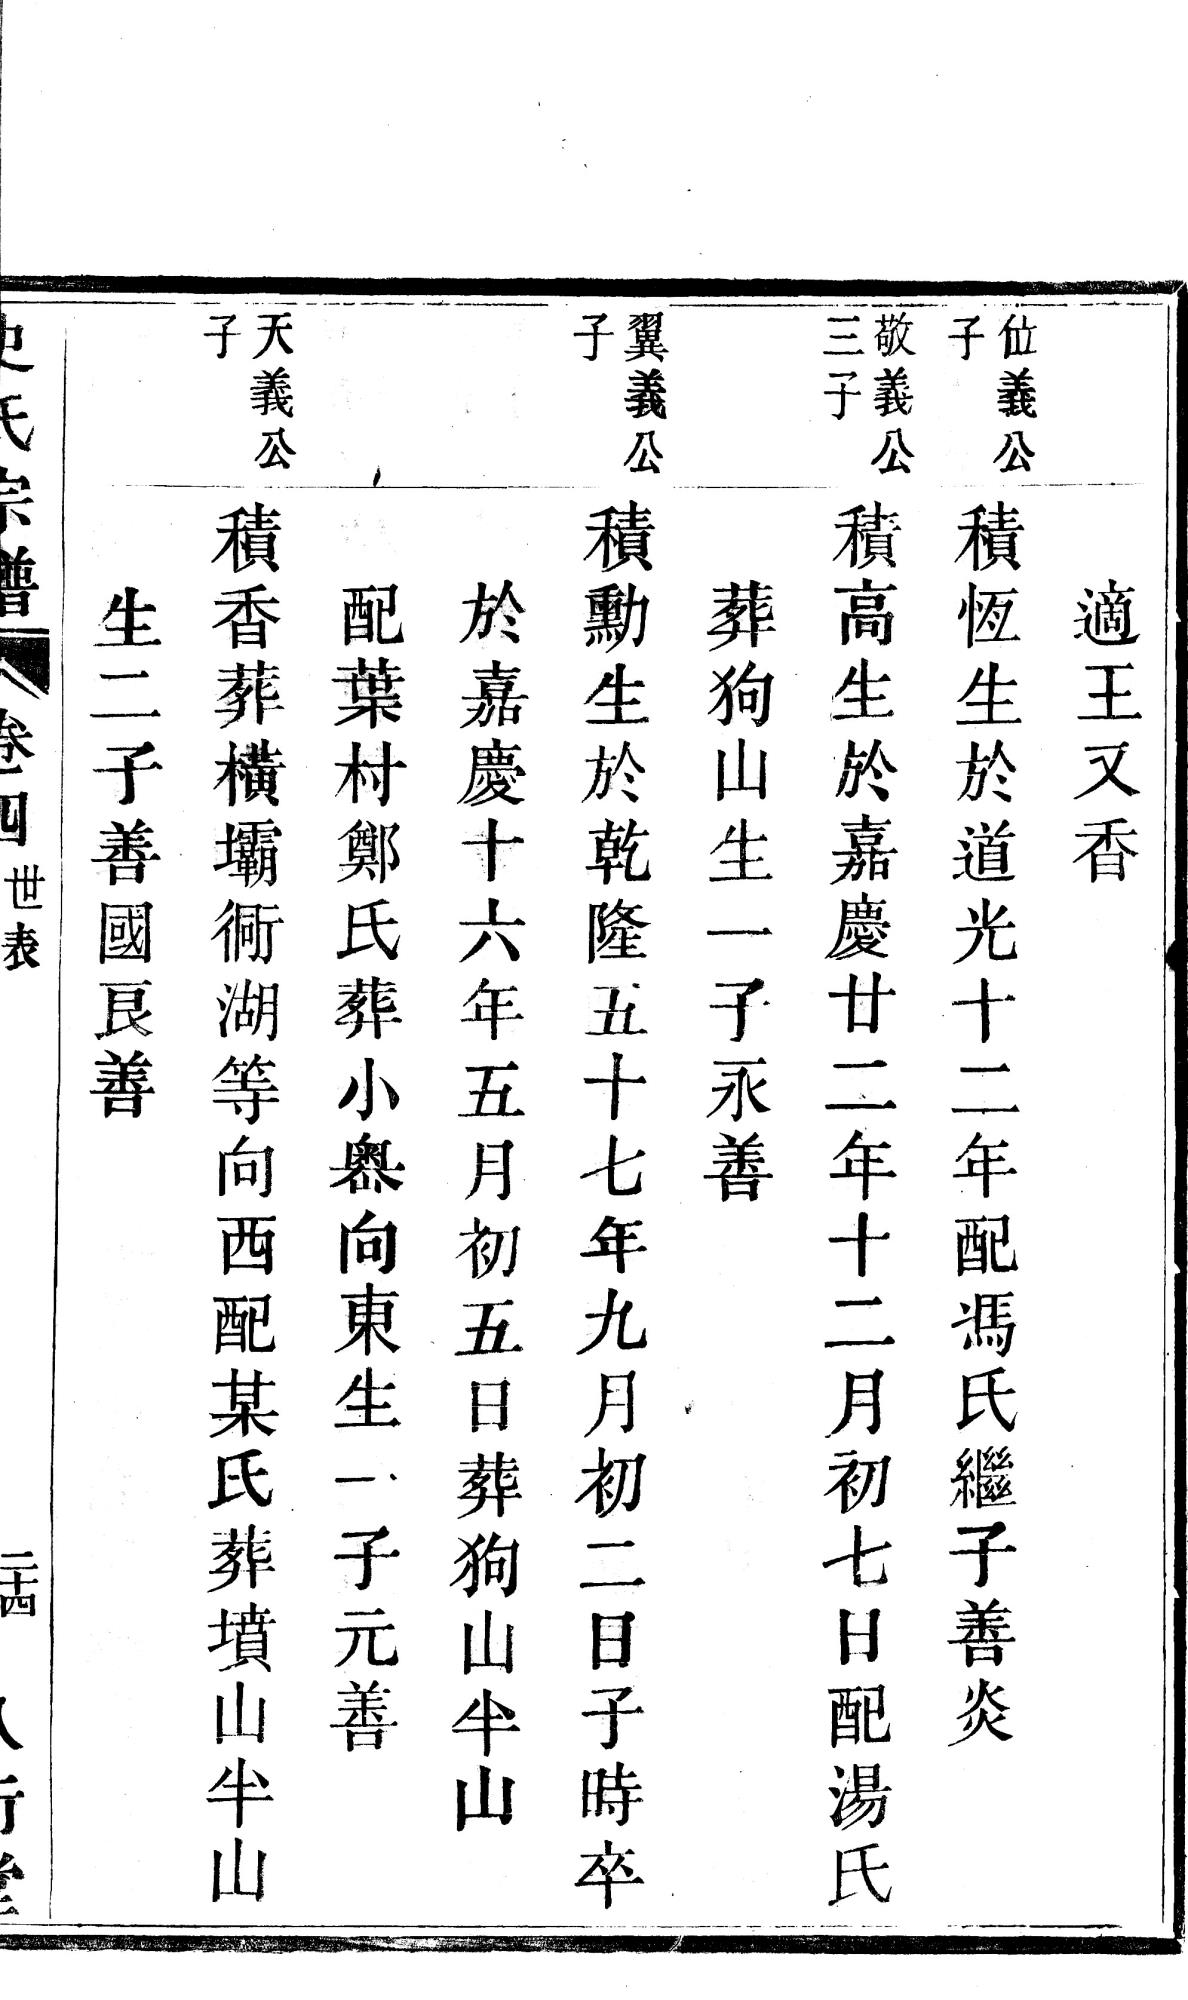 適王又香
位義公
子
積恆生於道光十二年配馮氏繼子善炎
敬義公
三子
積高生於嘉慶廿二年十二月初七日配湯氏
葬狗山生一子永善
翼義公
子
積勳生於乾隆五十七年九月初二日子時卒
於嘉慶十六年五月初五日葬狗山半山
配葉村鄭氏葬小嶴向東生一子元善
天義公
子
積香葬橫壩衕湖等向西配某氏葬墳山半山
生二子善國艮善
史氏宗譜 卷四 世表 二十四 八行堂